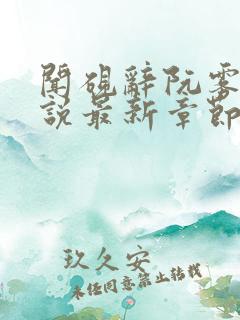 闻砚辞阮雾
说最新章节
玖久安
未经同意禁止转载